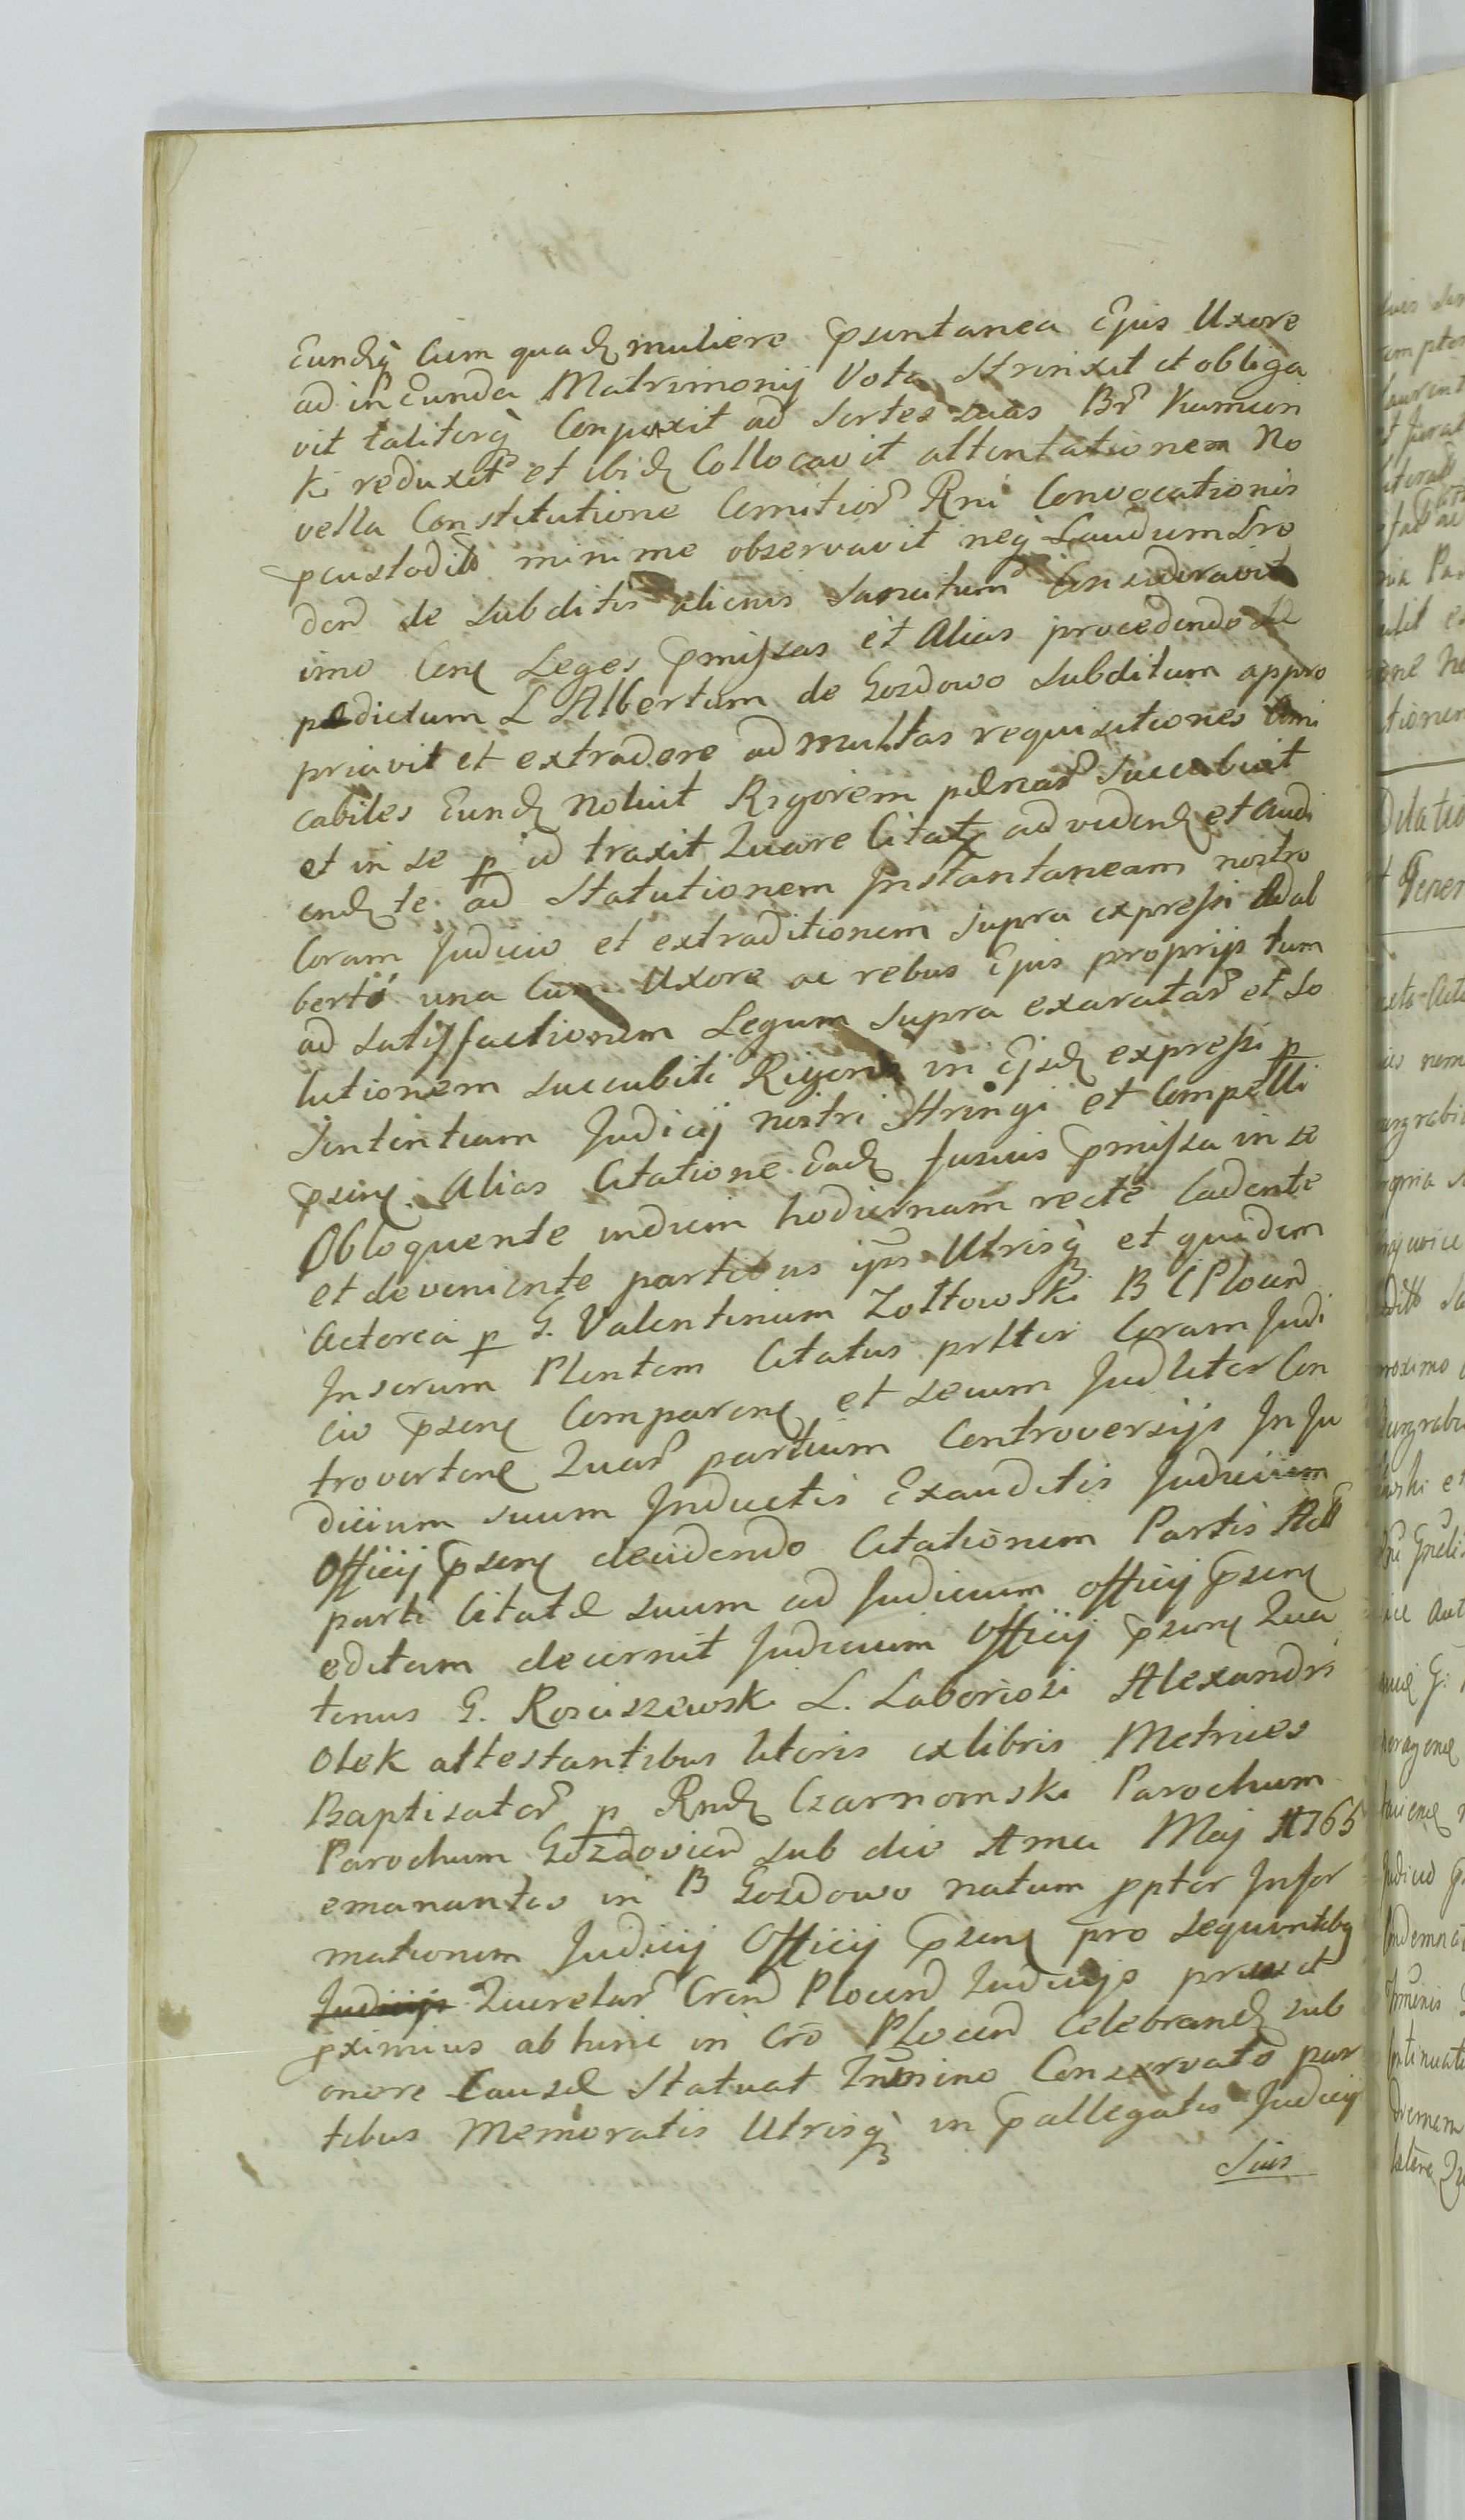 Eundq̀ Cum quadɣ muliere psuntanea Ejus Uxore
ad in Eunda Matrimonij Vota Strinxit et obliga
vit taliterq̀ Conjunxit ad Sortes suas Br̃ Kumun
ki reduxit et ibidɣ Collocavit attentationem No
vella Constitutione Comitior̃ Rni Convocationis
pcustodito minime observavit neq̀ Laudum Dro
den̄ de subditis alienis Sancitum Consideravit
imo Cenɣ Leges pmissas et Alias procedendo se
pdictum L Albertum de Gozdowo subditum appro
priavit et extradere ad multas requisitiones Ami
cabiles Eundɣ Noluit Rigorem pænar̃ Succubuit
et in se p id traxit Quare Citatɣ ad videndɣ et audi
endɣ te ad Statutionem Instantaneam nostro
Coram Judicio et extraditionem Supra expressi Adal
berti una Cum Uxore ac rebus Ejus proprijs tum
ad satisfactionem Legum Supra exaratar̃ et So
lutionem succubiti Rigoris in Ejsdɣ expressi p
Sententiam Judicij nostri Stringi et Compelli
psinɣ. Alias Citatione Eadɣ fusius pmissa in se
Obloquente indiem hodiernam recte Cadente
et deveniente partibus ijs Utrisq̀ et quidem
Actorea p G. Valentinum Zołtowski B C Plocen̄
Juserum Plentem Citatus prltir Coram Judi
cio psenɣ Comparenɣ et secum Judliter Con
trovertenɣ Quar̃ partium Controversijs In Ju
dicium suum Inductis Exauditis Judicium
Officij psenɣ decidendo Citationem Partis Act
parti Citatæ suum ad Judicium officij psenɣ
editam decernit Judicium Officij psenɣ Qua
tenus G. Rosciszewski L. Laboriosi Alexandri
Olek attestantibus literis ex libris Metrices
Baptisator̃ p Rndɣ Czarnomski Parochum
Parochum Gozdovien̄ sub die Ama Maj A765
emanantes in B Gozdowo natum ppter Infor
mationem Judicij Officij psenɣ pro sequentibɣ
Judicijs Querelar̃ Cren̄ Plocen̄ Judicijs
pximius abhinc in Cro Plocen̄ Celebrandɣ sub
onere Causæ Statuat Tr̃mino Conservato par
tibus Memoratis Utrisq̀ in pallegatis Judicij
Suis